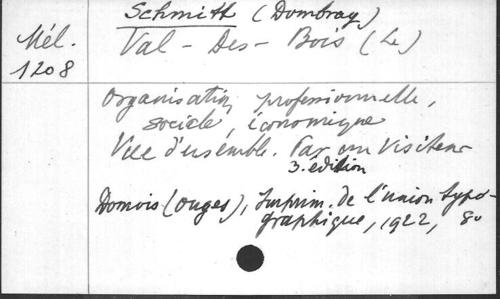 Schmitt (Dombray)
Mél. 1208
Val-Des-Bois (Le)
Organisation professionnelle,
sociale, économique
Vue d'ensemble. Par un Visiteur
3. édition
Domois (Ouges), Imprim. de l'union typo-
graphique, 1922, 8o